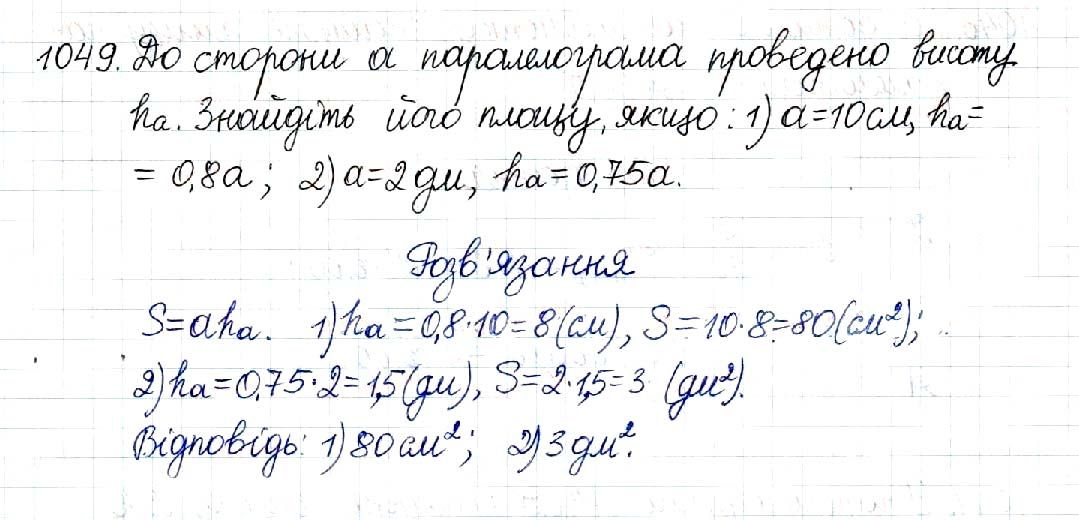 1049. До сторони a паралелограма проведено висоту
hₐ. Знайдіть його площу, якщо: 1) a=10 см, hₐ=
= 0,8a; 2) a=2 дм, hₐ=0,75a.
Розв'язання
S=ahₐ. 1) hₐ=0,8·10=8(см), S=10·8=80(см²);
2) hₐ=0,75·2=1,5(дм), S=2·1,5=3 (дм²).
Відповідь: 1) 80 см²; 2) 3 дм².